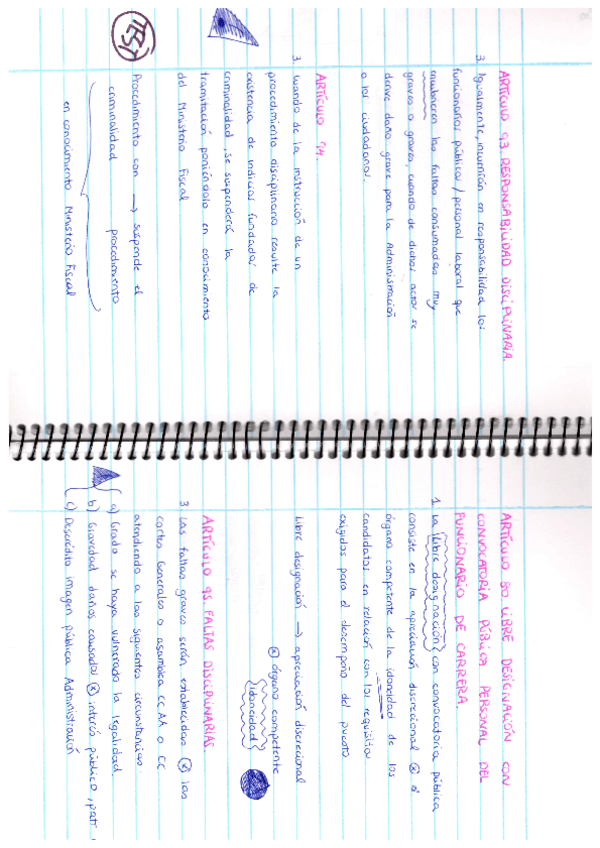 ARTÍCULO 93 RESPONSABILIDAD DISCIPLINARIA.
3. Igualmente, incurrirán en responsabilidad los
funcionarios públicos / personal laboral que
encubrieren las faltas consumadas muy
graves o graves, cuando de dichos actos se
derive daño grave para la Administración
o los ciudadanos.
ARTÍCULO 94.
3. Cuando de la instrucción de un
procedimiento disciplinario resulte la
existencia de indicios fundados de
criminalidad, se suspenderá la
tramitación poniéndolo en conocimiento
del Ministerio Fiscal
TEST
Procedimiento con → suspende el
criminalidad procedimiento
en conocimiento Ministerio Fiscal
ARTÍCULO 80 LIBRE DESIGNACIÓN CON
CONVOCATORIA PÚBLICA PERSONAL DEL
FUNCIONARIO DE CARRERA.
1. La libre designación con convocatoria pública
consiste en la apreciación discrecional x el
órgano competente de la idoneidad de los
candidatos en relación con los requisitos
exigidos para el desempeño del puesto
Libre designación → apreciación discrecional
x órgano competente
(Idoneidad)
ARTÍCULO 95. FALTAS DISCIPLINARIAS.
3. Las faltas graves serán establecidas x las
Cortes Generales o asamblea CC AA o CC
atendiendo a las siguientes circunstancias:
a) Grado se haya vulnerado la legalidad.
b) Gravedad daños causados x interés público, patr
c) Descrédito imagen pública Administración